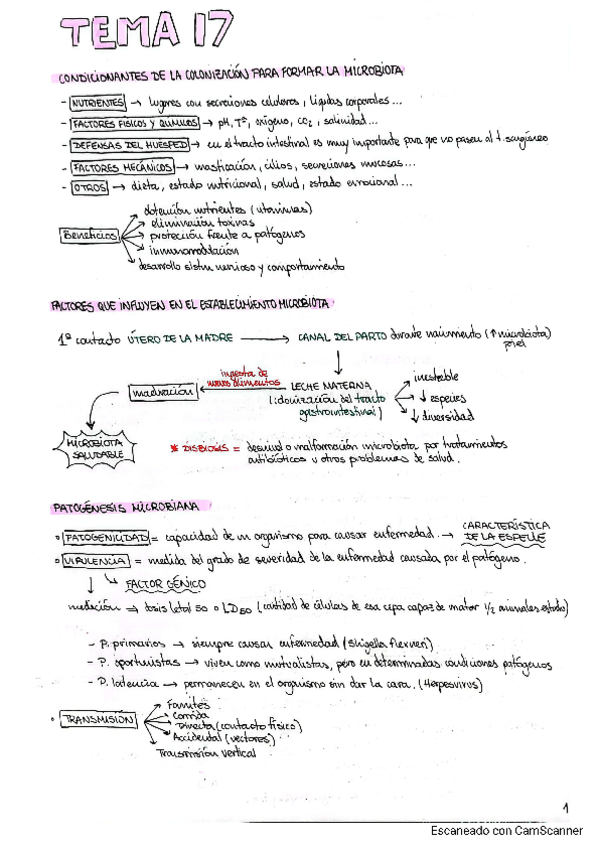 TEMA 17
CONDICIONANTES DE LA COLONIZACIÓN PARA FORMAR LA MICROBIOTA
- NUTRIENTES → lugares con secreciones celulares, líquidos corporales...
- FACTORES FÍSICOS Y QUÍMICOS → pH, Tº, oxígeno, CO2, salinidad...
- DEFENSAS DEL HUÉSPED → en el tracto intestinal es muy importante para que no pasen al t. sanguíneo
- FACTORES MECÁNICOS → masticación, cilios, secreciones mucosas...
- OTROS → dieta, estado nutricional, salud, estado emocional...
Beneficios
obtención nutrientes (vitaminas)
eliminación toxinas
protección frente a patógenos
inmunomodulación
desarrollo sistm nervioso y comportamiento
FACTORES QUE INFLUYEN EN EL ESTABLECIMIENTO MICROBIOTA
1º contacto ÚTERO DE LA MADRE → CANAL DEL PARTO durante nacimiento (↑ microbiota)
piel
LECHE MATERNA
(colonización del tracto
gastrointestinal)
inestable
↓ especies
↓ diversidad
ingesta de
nuevos alimentos
maduración
MICROBIOTA
SALUDABLE
* DISBIOSIS = desequil o malformación microbiota por tratamientos
antibióticos u otros problemas de salud.
PATOGÉNESIS MICROBIANA
• PATOGENICIDAD = capacidad de un organismo para causar enfermedad. → CARACTERÍSTICA
DE LA ESPECIE
• VIRULENCIA = medida del grado de severidad de la enfermedad causada por el patógeno.
FACTOR GÉNICO
medición ⇒ dosis letal 50 o LD50 (cantidad de células de esa cepa capaz de matar 1/2 animales estudio)
- P. primarios → siempre causan enfermedad (Shigella flexneri)
- P. oportunistas → viven como mutualistas, pero en determinadas condiciones patógenos
- P. latencia → permanecen en el organismo sin dar la cara. (Herpesvirus)
• TRANSMISIÓN
Fómites
Comida
Directa (contacto físico)
Accidental (vectores)
Transmisión vertical
1
Escaneado con CamScanner